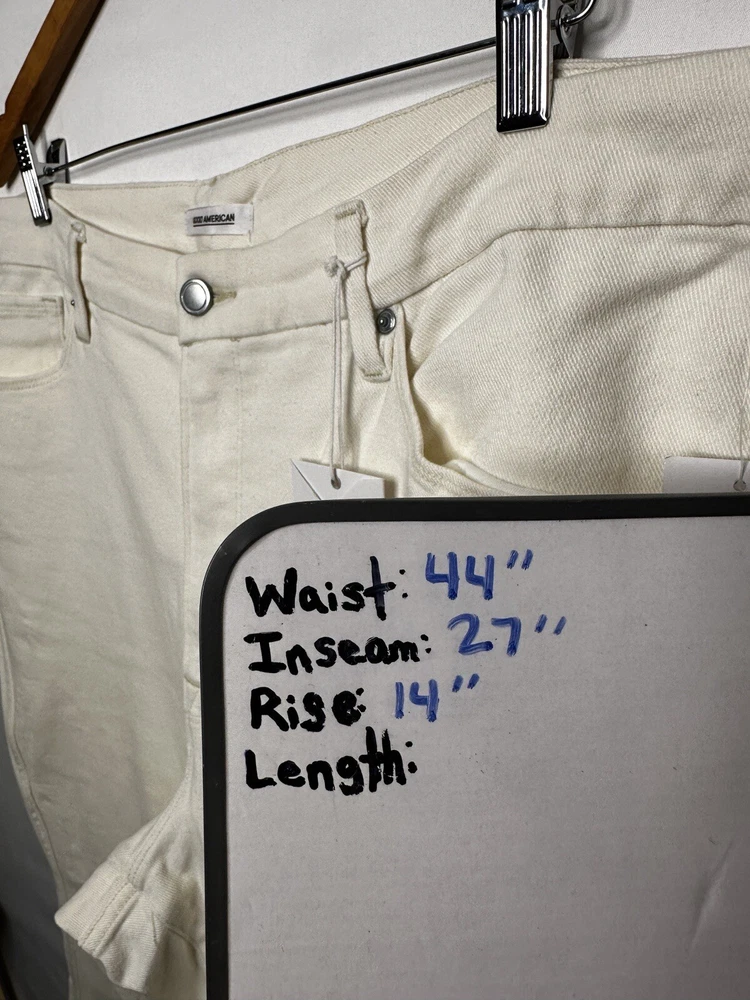 GOOD AMERICAN
Waist: 44"
Inseam: 27"
Rise: 14"
Length: